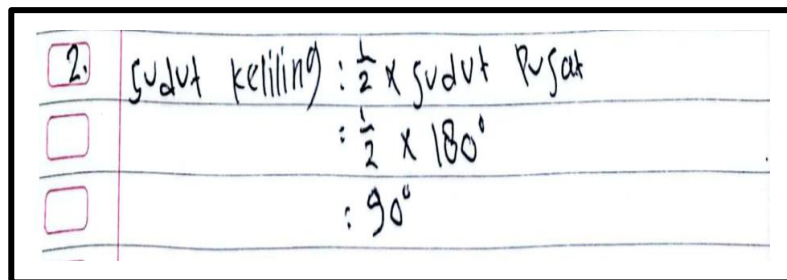 2. Sudut keliling : 1/2 x sudut Pusat
: 1/2 x 180°
: 90°